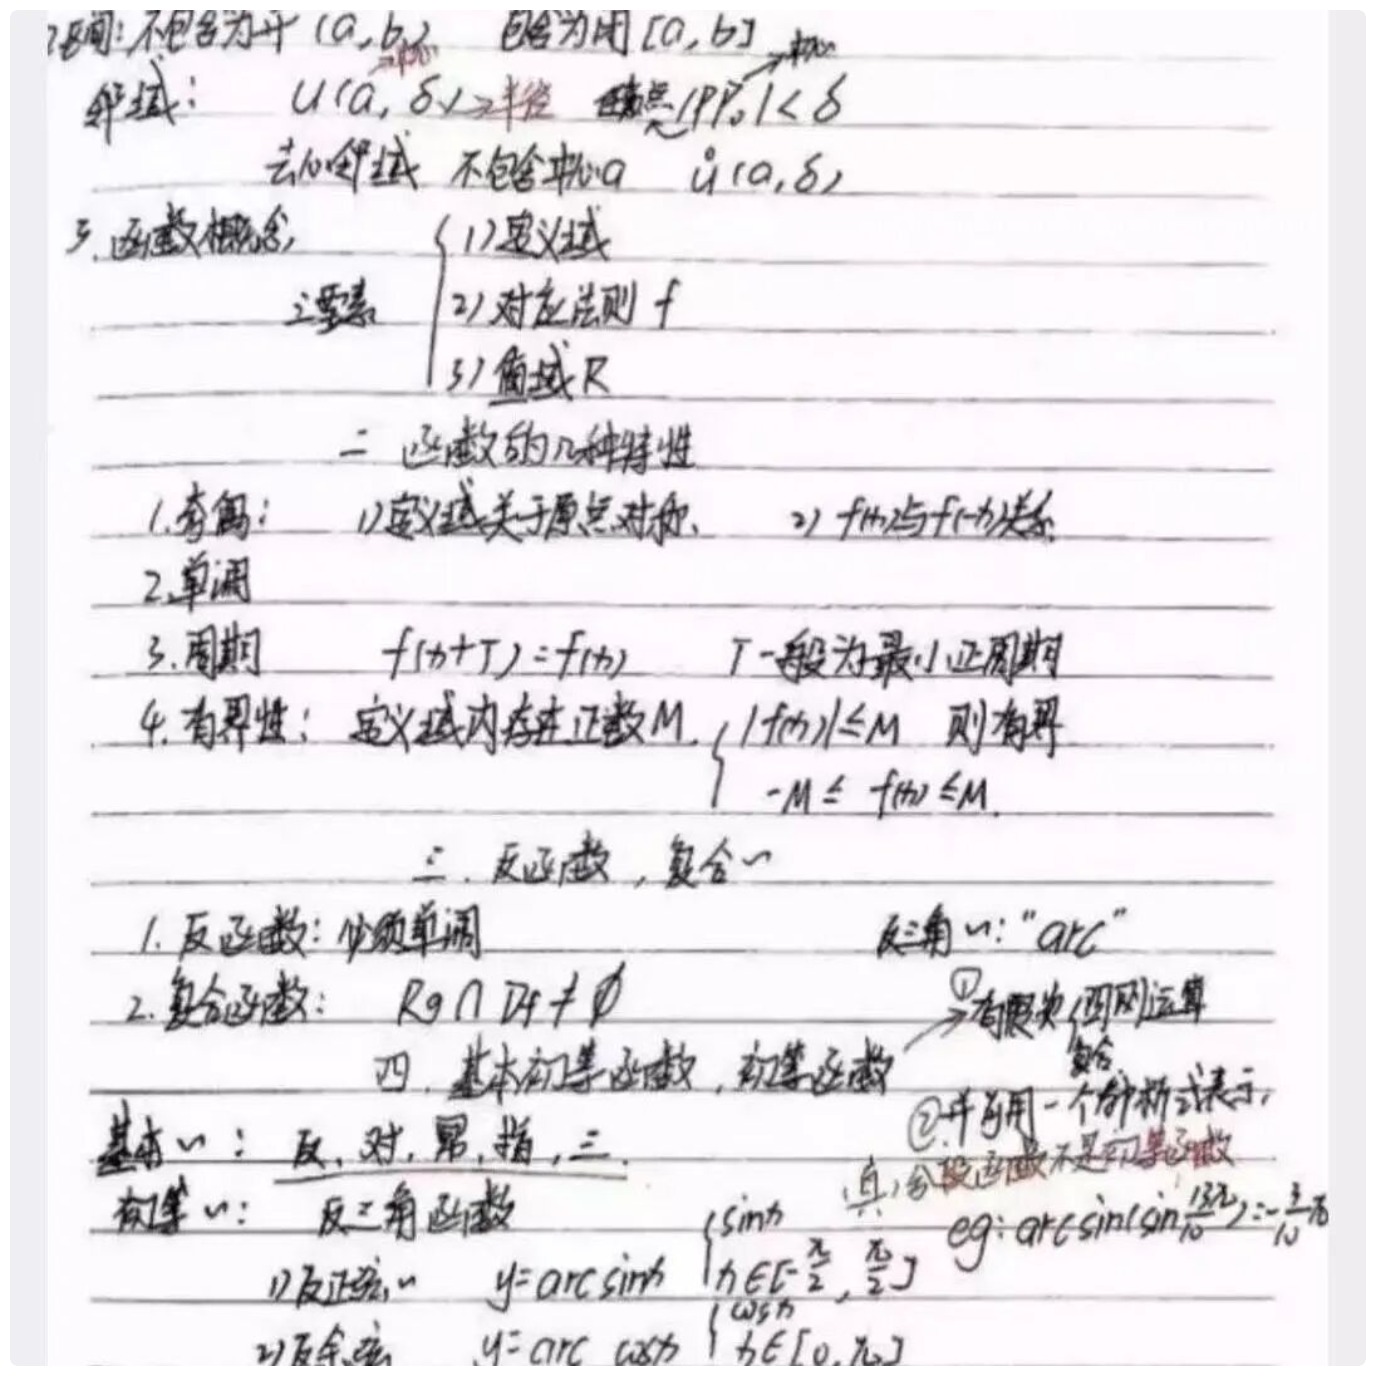 2区间：不包含为开 (a, b)   包含为闭 [a, b]
邻域：  U(a, δ) →半径   →中心   P点 |PP₀| < δ   →中心
去心邻域  不包含中心a   Ů(a, δ)
3. 函数概念
三要素 { 1) 定义域
2) 对应法则 f
3) 值域 R
二 函数的几种特性
1. 奇偶：  1) 定义域关于原点对称.   2) f(x)与f(-x)关系
2. 单调
3. 周期   f(x+T) = f(x)   T一般为最小正周期
4. 有界性：  定义域内存在正数M. { |f(x)| ≤ M  则有界
-M ≤ f(x) ≤ M.
三. 反函数，复合~
1. 反函数：必须单调   反三角~："arc"
2. 复合函数：  Rg ∩ Df ≠ ∅   →①有限次{四则运算
复合
四. 基本初等函数，初等函数
②并可用一个解析式表示.
基本~：  反.对.幂.指.三.   (真)分段函数不是初等函数
初等~：  反三角函数   eg: arc sin(sin 13π/10) = -3/10 π
1) 反正弦~   y = arc sinx { sinx
x∈[-π/2, π/2]
2) 反余弦   y = arc cosx { cosx
x∈[0, π]